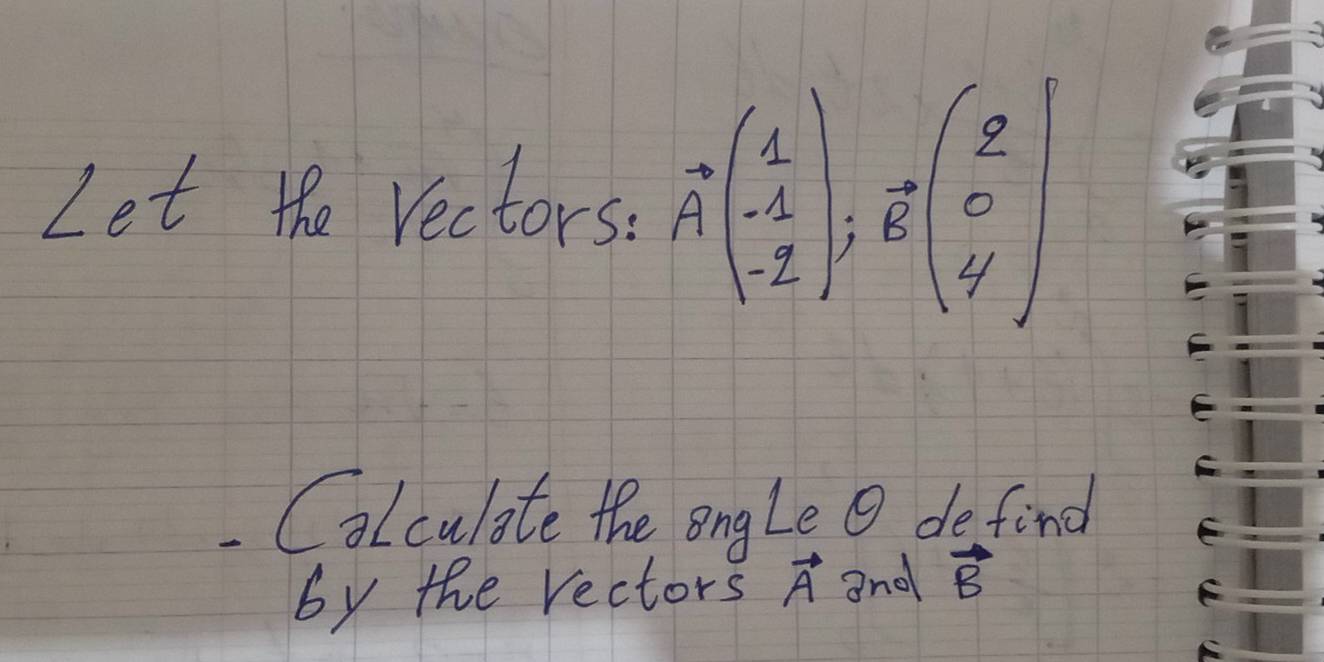 Let the vectors: A⃗ (1 -1 -2); B⃗ (2 0 4)
- Calculate the angle Θ defind
by the vectors A⃗ and B⃗